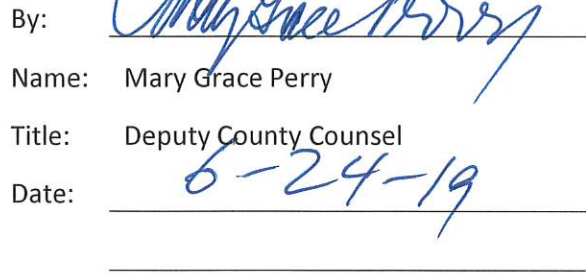 By: Mary Grace Perry
Name: Mary Grace Perry
Title: Deputy County Counsel
Date: 6-24-19